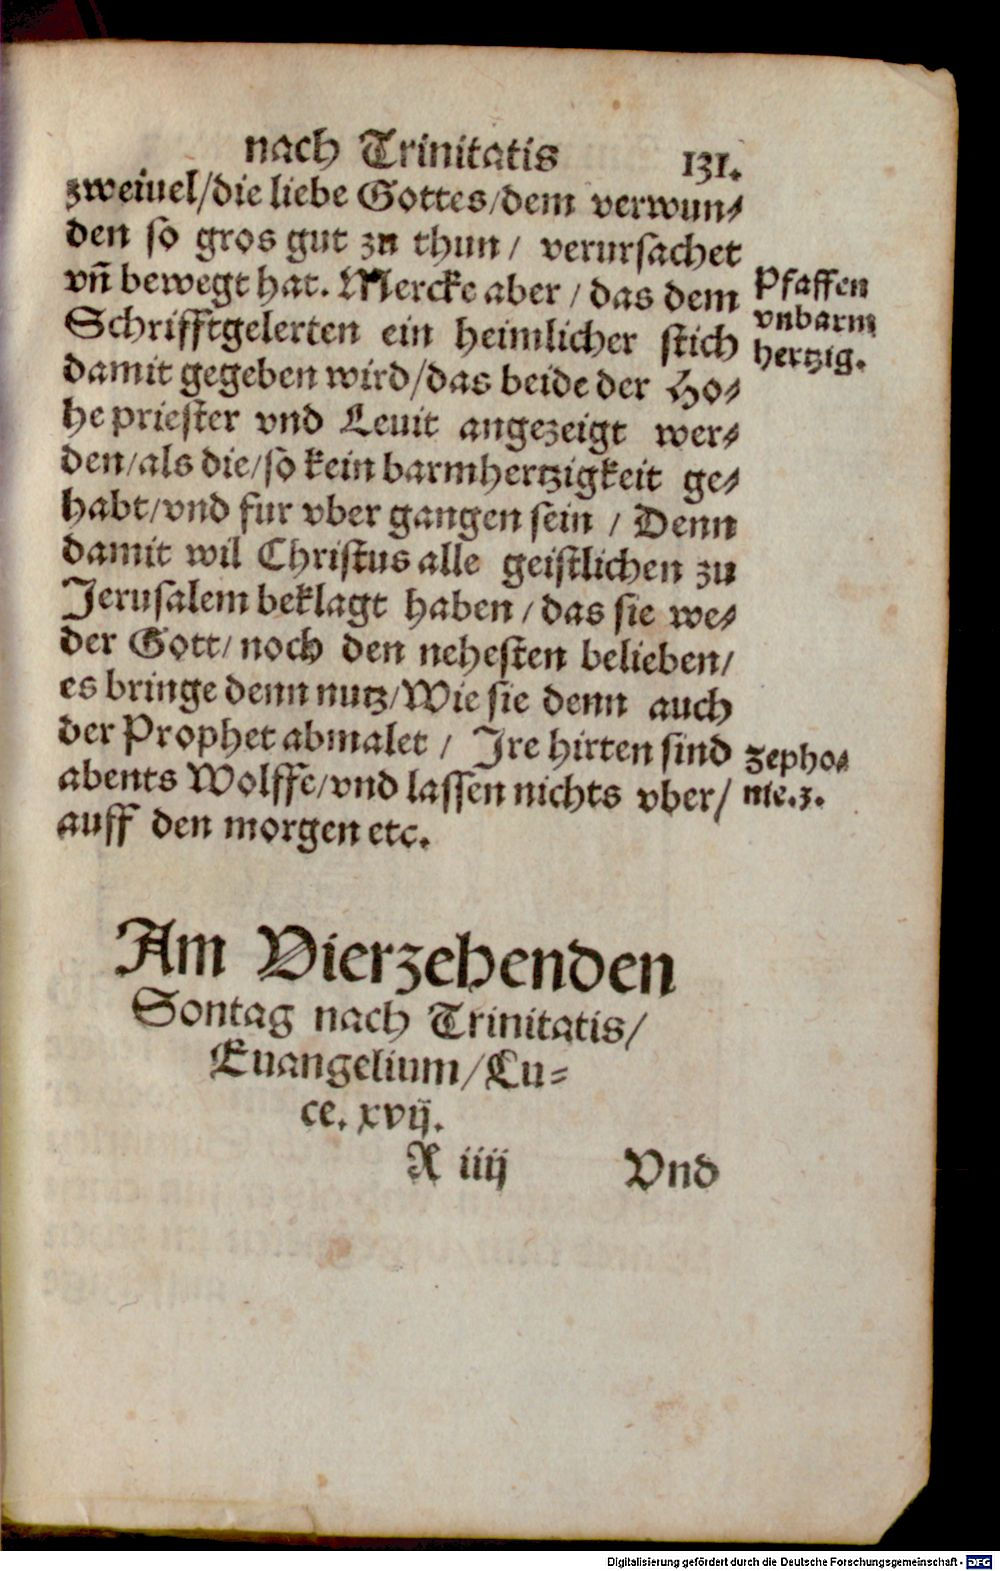 nach Trinitatis 131.
zweiuel/die liebe Gottes/dem verwun⸗
den so gros gut zu thun / verursachet
vñ bewegt hat. Mercke aber / das dem
Schrifftgelerten ein heimlicher stich
damit gegeben wird/das beide der Ho⸗
he priester vnd Leuit angezeigt wer⸗
den/als die/so kein barmhertzigkeit ge⸗
habt/vnd fur vber gangen sein / Denn
damit wil Christus alle geistlichen zu
Jerusalem beklagt haben / das sie we⸗
der Gott/ noch den nehesten belieben/
es bringe denn nutz/Wie sie denn auch
der Prophet abmalet / Jre hirten sind
abents Wolffe/vnd lassen nichts vber/
auff den morgen etc.
Pfaffen
vnbarm
hertzig.
Zepho⸗
nie.3.
Am Vierzehenden
Sontag nach Trinitatis/
Euangelium/Lu⸗
ce. xvij.
R iiij Vnd
Digitalisierung gefördert durch die Deutsche Forschungsgemeinschaft - DFG